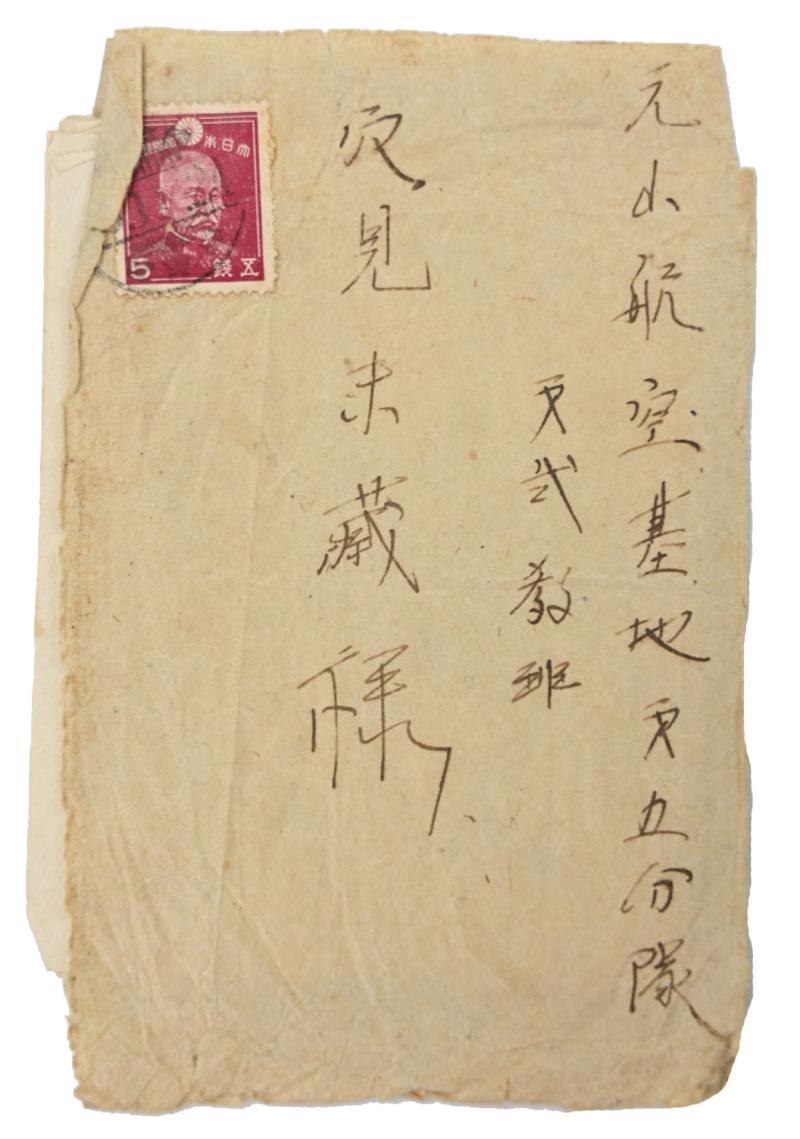 元山航空基地㐧五分隊
㐧弍教班
穴見末藏様
大日本帝國郵便
5 五錢